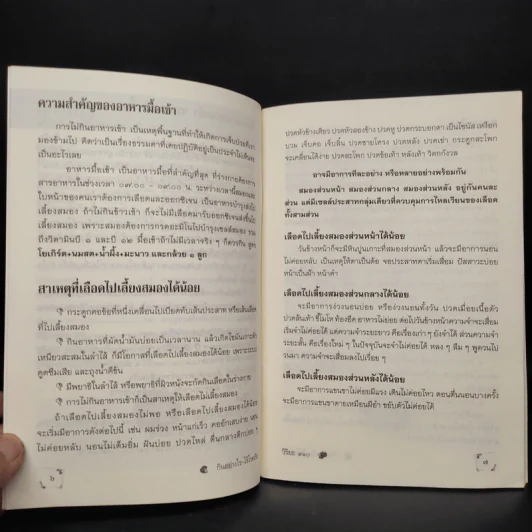 ความสำคัญของอาหารมื้อเช้า
การไม่กินอาหารเช้า เป็นเหตุพื้นฐานที่ทำให้เกิดการเจ็บป่วยที่เรา
มองข้ามไป คิดว่าเป็นเรื่องธรรมดาที่เคยปฏิบัติอยู่เป็นประจำไม่เห็นจะ
เป็นอะไรเลย
อาหารมื้อเช้า เป็นอาหารมื้อที่สำคัญที่สุด ที่ร่างกายต้องการ
สารอาหารในช่วงเวลา ๐๗.๐๐ - ๐๙.๐๐ น. ระหว่างเวลานี้สมองและ
ใบหน้าของคนเราต้องการเลือดและออกซิเจน เป็นอาหารบำรุงส่งไป
เลี้ยงสมอง ถ้าไม่กินข้าวเช้า ก็จะไม่มีเลือดมารับออกซิเจนส่งขึ้นไป
เลี้ยงสมอง เพราะสมองต้องการกรดอะมิโนไปบำรุงเซลล์สมอง รวม
ถึงวิตามินบี ๑ และ บี ๑๒ มื้อเช้าถ้าไม่มีเวลาจริง ๆ ก็ควรกิน สูตร
โยเกิร์ต+นมสด+น้ำผึ้ง+มะนาว และกล้วย ๑ ลูก
สาเหตุที่เลือดไปเลี้ยงสมองได้น้อย
กระดูกคอข้อที่หนึ่งเคลื่อนไปเบียดทับเส้นประสาท หรือเส้นเลือด
ที่ไปเลี้ยงสมอง
กินอาหารที่ผัดน้ำมันบ่อยเป็นเวลานาน แล้วเกิดไขมันเกาะตัว
เหนียวสะสมในลำไส้ ก็มีโอกาสที่เลือดไปเลี้ยงสมองได้น้อย เพราะระบบ
ดูดซึมเสีย และถุงน้ำดีข้น
มีพยาธิในลำไส้ หรือพยาธิที่ผิวหนังจะกัดกินเลือดในร่างกาย
การไม่กินอาหารเช้าก็เป็นสาเหตุให้เลือดไม่เลี้ยงสมอง
ถ้าเลือดไปเลี้ยงสมองไม่พอ หรือเลือดไปเลี้ยงสมองได้น้อย
จะเริ่มมีอาการดังต่อไปนี้ เช่น ผมร่วง หน้าแก่เร็ว คอยืด
ไม่ค่อยหลับ นอนไม่เต็มอิ่ม ฝันบ่อย ปวดไหล่ ตื่นกลางดึก
กินอย่างไร
๖
ปวดหัวข้างเดียว ปวดหัวสองข้าง ปวดหู ปวดกระบอกตา เป็นไซนัส เหงือก
บวม เจ็บคอ เจ็บลิ้น ปวดชายโครง ปวดหลัง ปวดเข่า กระดูกสะโพก
จะเคลื่อนได้ง่าย ปวดสะโพก ปวดข้อเท้า หลังเท้า วิตกกังวล
อาจมีอาการทีละอย่าง หรือหลายอย่างพร้อมกัน
สมองส่วนหน้า สมองส่วนกลาง สมองส่วนหลัง อยู่กันคนละ
ส่วน แต่มีเซลล์ประสาทกลุ่มเดียวที่ควบคุมการไหลเวียนของเลือด
ทั้งสามส่วน
เลือดไปเลี้ยงสมองส่วนหน้าได้น้อย
วันข้างหน้าก็จะมีหินปูนเกาะที่สมองส่วนหน้า แล้วจะมีอาการนอน
ไม่ค่อยหลับ เป็นเหตุให้ตาเป็นต้อ จอประสาทตาเริ่มเสื่อม ปัสสาวะบ่อย
หน้าเป็นฝ้า หน้าดำ
เลือดไปเลี้ยงสมองส่วนกลางได้น้อย
จะมีอาการง่วงนอนบ่อย หรือง่วงนอนทั้งวัน ปวดเมื่อยเนื้อตัว
ปวดส้นเท้า ขี้โมโห ท้องอืด อาหารไม่ย่อย ต่อไปวันข้างหน้าความจำจะเสื่อม
เริ่มจำไม่ค่อยได้ แต่ความจำระยะยาว คือเรื่องเก่าๆ ยังจำได้ ส่วนความจำ
ระยะสั้น คือเรื่องใหม่ ๆ ในปัจจุบันจะจำไม่ค่อยได้ หลง ๆ ลืม ๆ พูดวนไป
วนมา ความจำจะเสื่อมลงไปเรื่อย ๆ
เลือดไปเลี้ยงสมองส่วนหลังได้น้อย
จะมีอาการแขนขาไม่ค่อยมีแรง เดินไม่ค่อยไหว ตอนตื่นนอนบางครั้ง
จะมีอาการแขนขาตายเหมือนผีอำ ขยับตัวไม่ค่อยได้
วิริยะ
๗